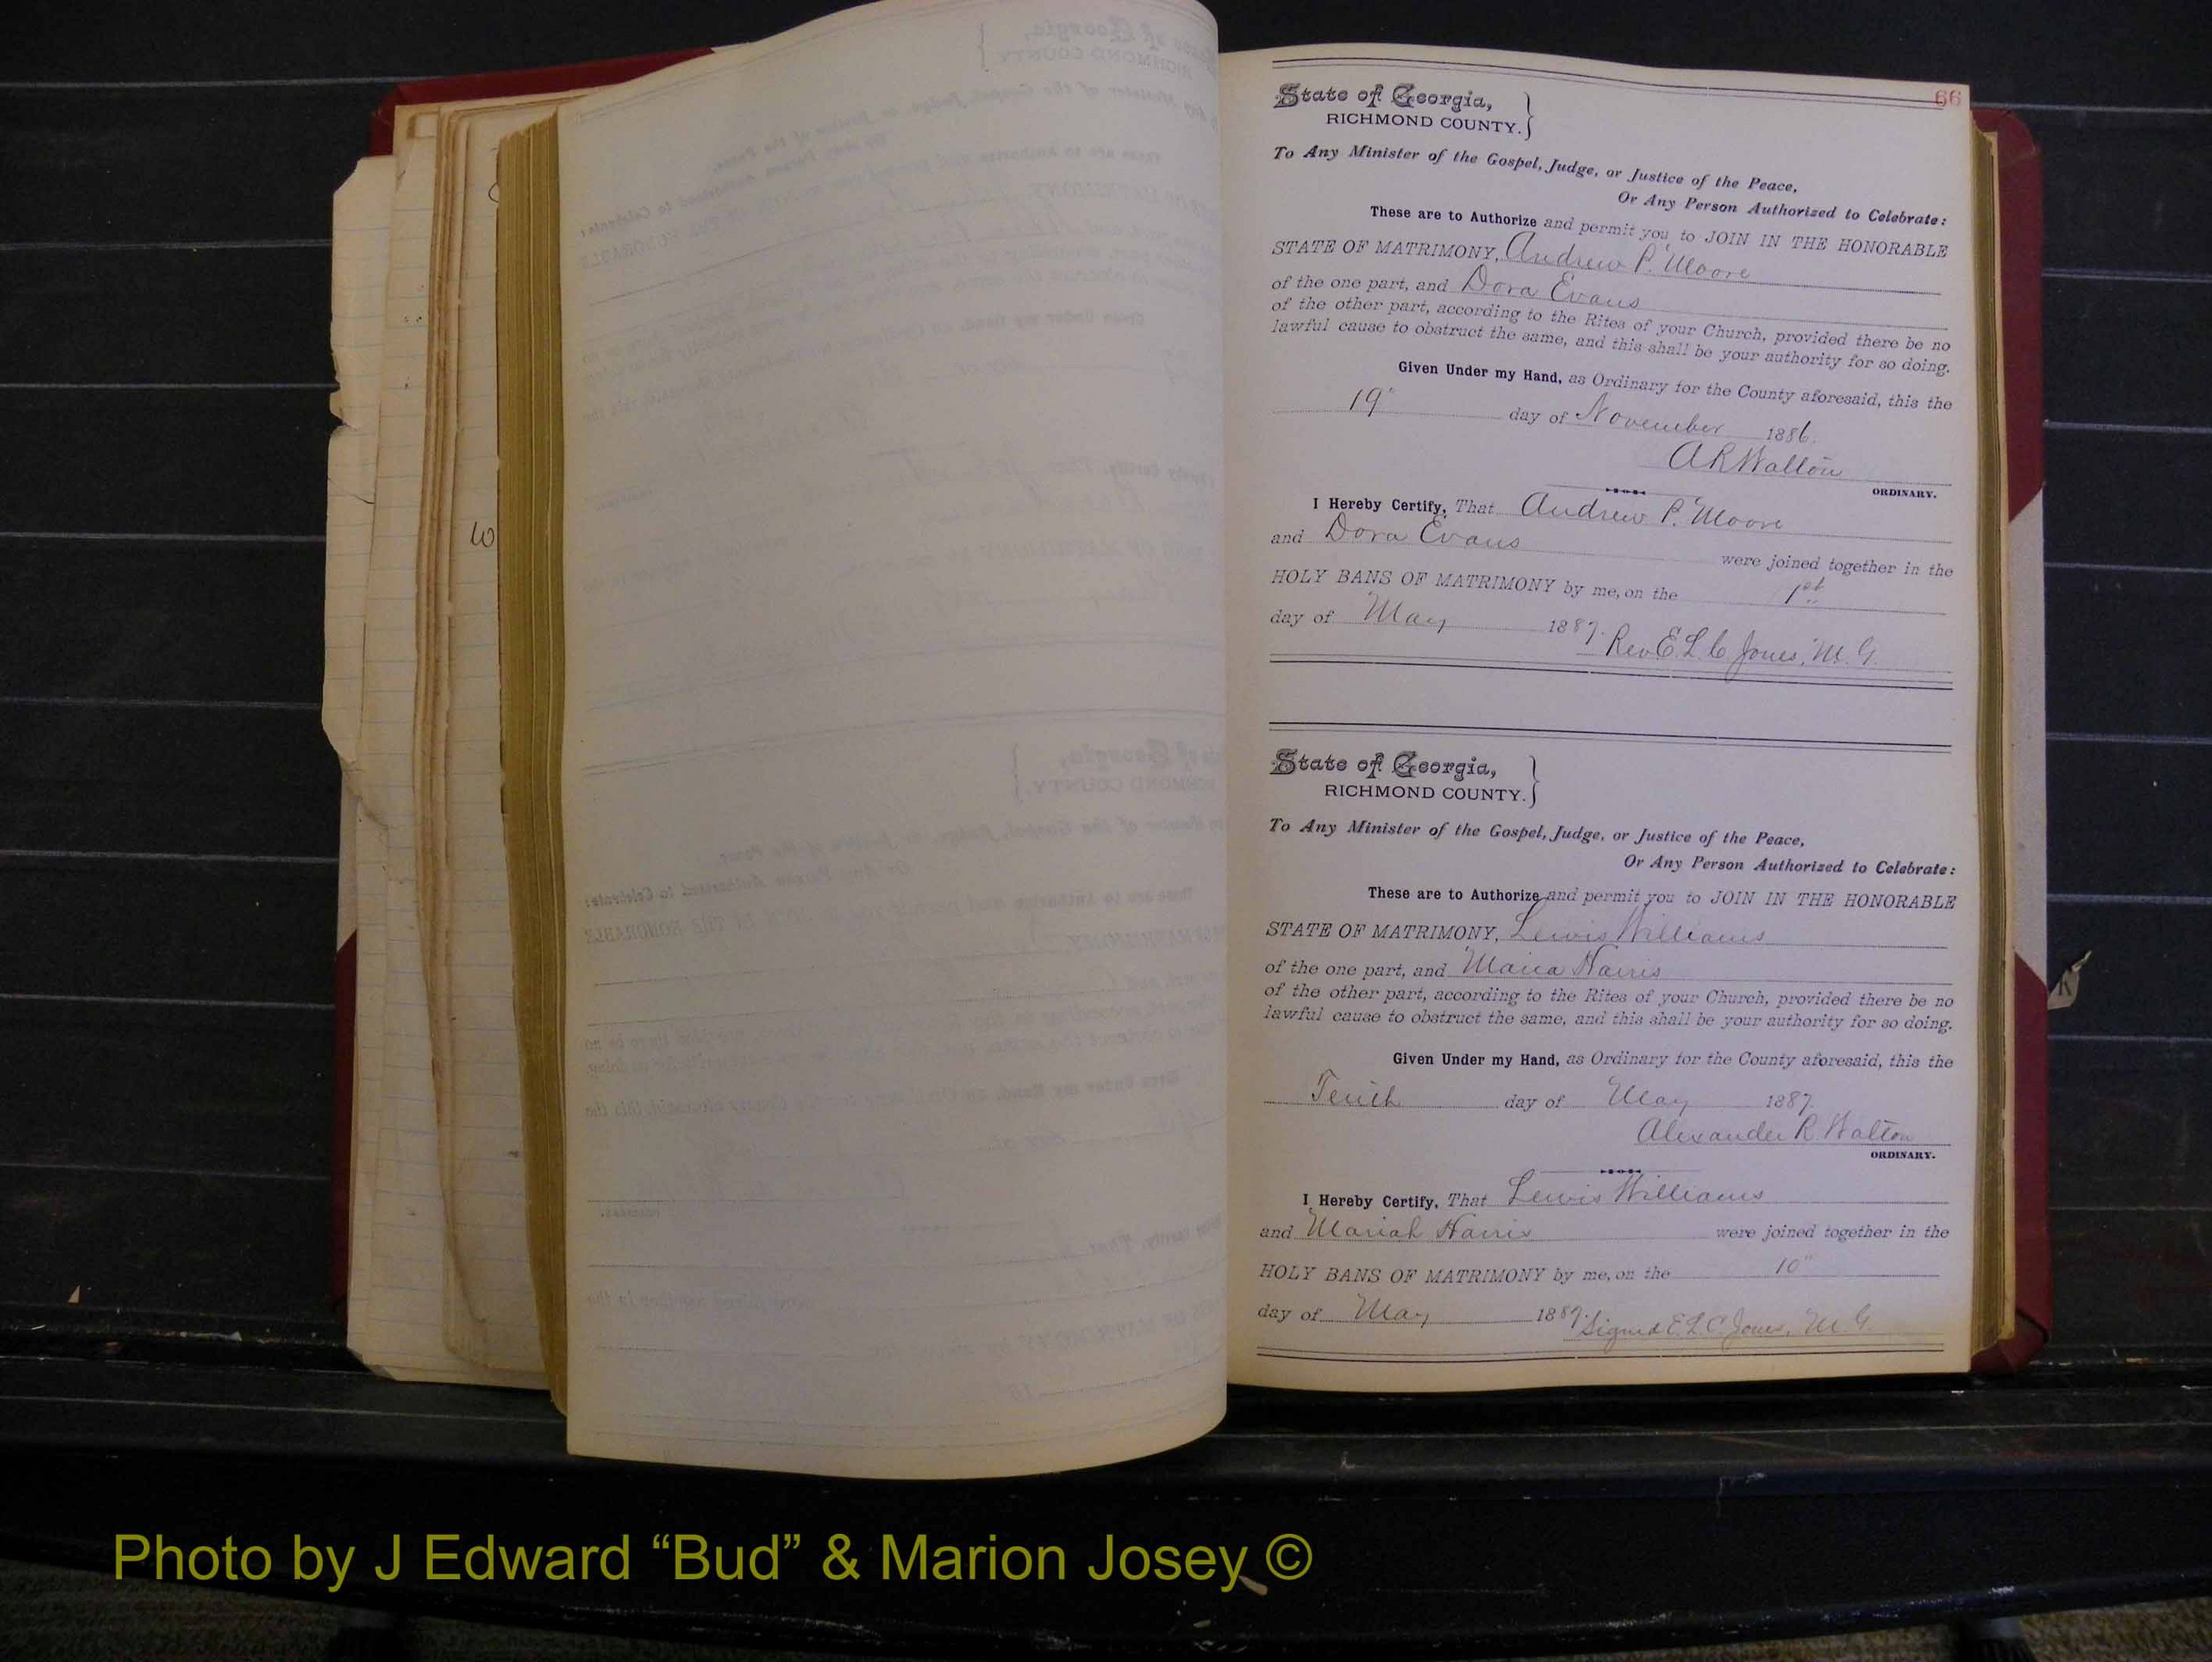 66
State of Georgia,
RICHMOND COUNTY.
To Any Minister of the Gospel, Judge, or Justice of the Peace,
Or Any Person Authorized to Celebrate:
These are to Authorize and permit you to JOIN IN THE HONORABLE
STATE OF MATRIMONY, Andrew P. Moore
of the one part, and Dora Evans
of the other part, according to the Rites of your Church, provided there be no
lawful cause to obstruct the same, and this shall be your authority for so doing.
Given Under my Hand, as Ordinary for the County aforesaid, this the
19" day of November 1886.
A R Walton
ORDINARY.
I Hereby Certify, That Andrew P. Moore
and Dora Evans were joined together in the
HOLY BANS OF MATRIMONY by me, on the 1st
day of May 1887.
Rev E. L. C Jones, M. G.
State of Georgia,
RICHMOND COUNTY.
To Any Minister of the Gospel, Judge, or Justice of the Peace,
Or Any Person Authorized to Celebrate:
These are to Authorize and permit you to JOIN IN THE HONORABLE
STATE OF MATRIMONY, Lewis Williams
of the one part, and Maria Harris
of the other part, according to the Rites of your Church, provided there be no
lawful cause to obstruct the same, and this shall be your authority for so doing.
Given Under my Hand, as Ordinary for the County aforesaid, this the
Tenth day of May 1887.
Alexander R. Walton
ORDINARY.
I Hereby Certify, That Lewis Williams
and Mariah Harris were joined together in the
HOLY BANS OF MATRIMONY by me, on the 10"
day of May 1887.
Signed E. L. C. Jones, M. G.
Photo by J Edward “Bud” & Marion Josey ©